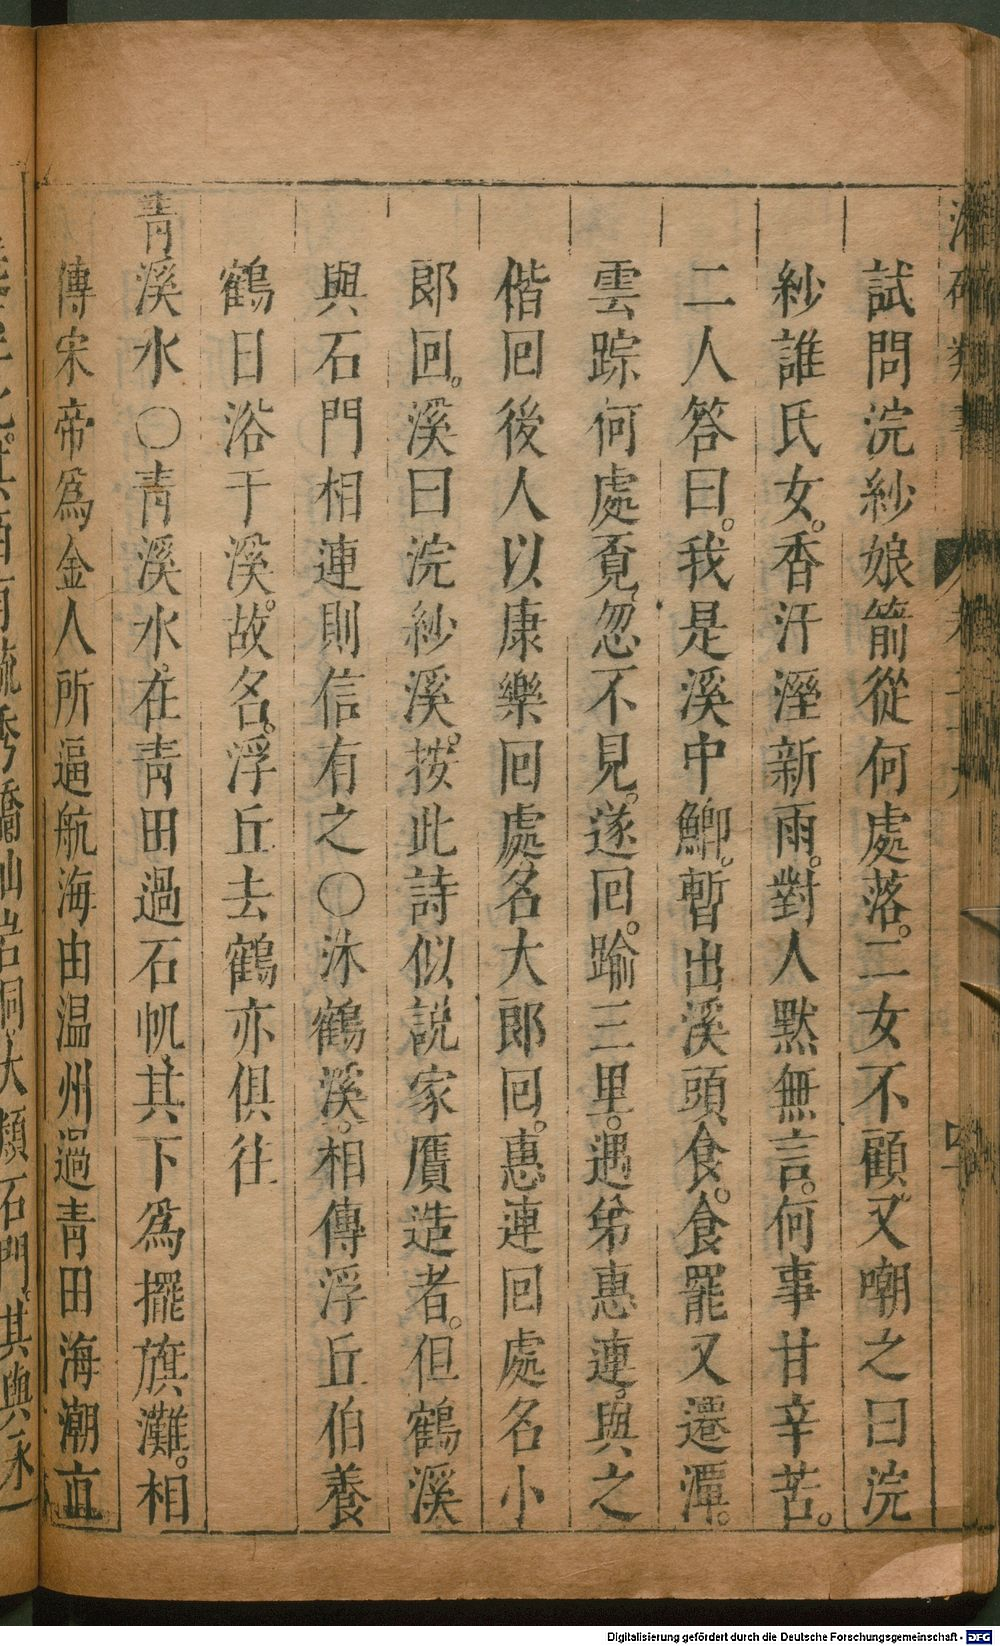 試問浣紗娘箭從何處落。二女不顧。又嘲之曰浣
紗誰氏女。香汗溼新雨。對人黙無言。何事甘辛苦。
二人答曰。我是溪中鯽。暫出溪頭食。食罷又還潭。
雲踪何處覔。忽不見。遂回。踰三里。遇弟惠連。與之
偕回後人以康樂回處名大郎回。惠連回處名小
郎回。溪曰浣紗溪。按此詩似説家贋造者。但鶴溪
與石門相連則信有之〇沐鶴溪。相傳浮丘伯養
鶴日浴于溪。故名。浮丘去鶴亦俱往
青溪水〇青溪水。在青田過石帆。其下爲擺旗灘。相
傳宋帝爲金人所逼航海由温州過青田海潮直
Digitalisierung gefördert durch die Deutsche Forschungsgemeinschaft - DFG